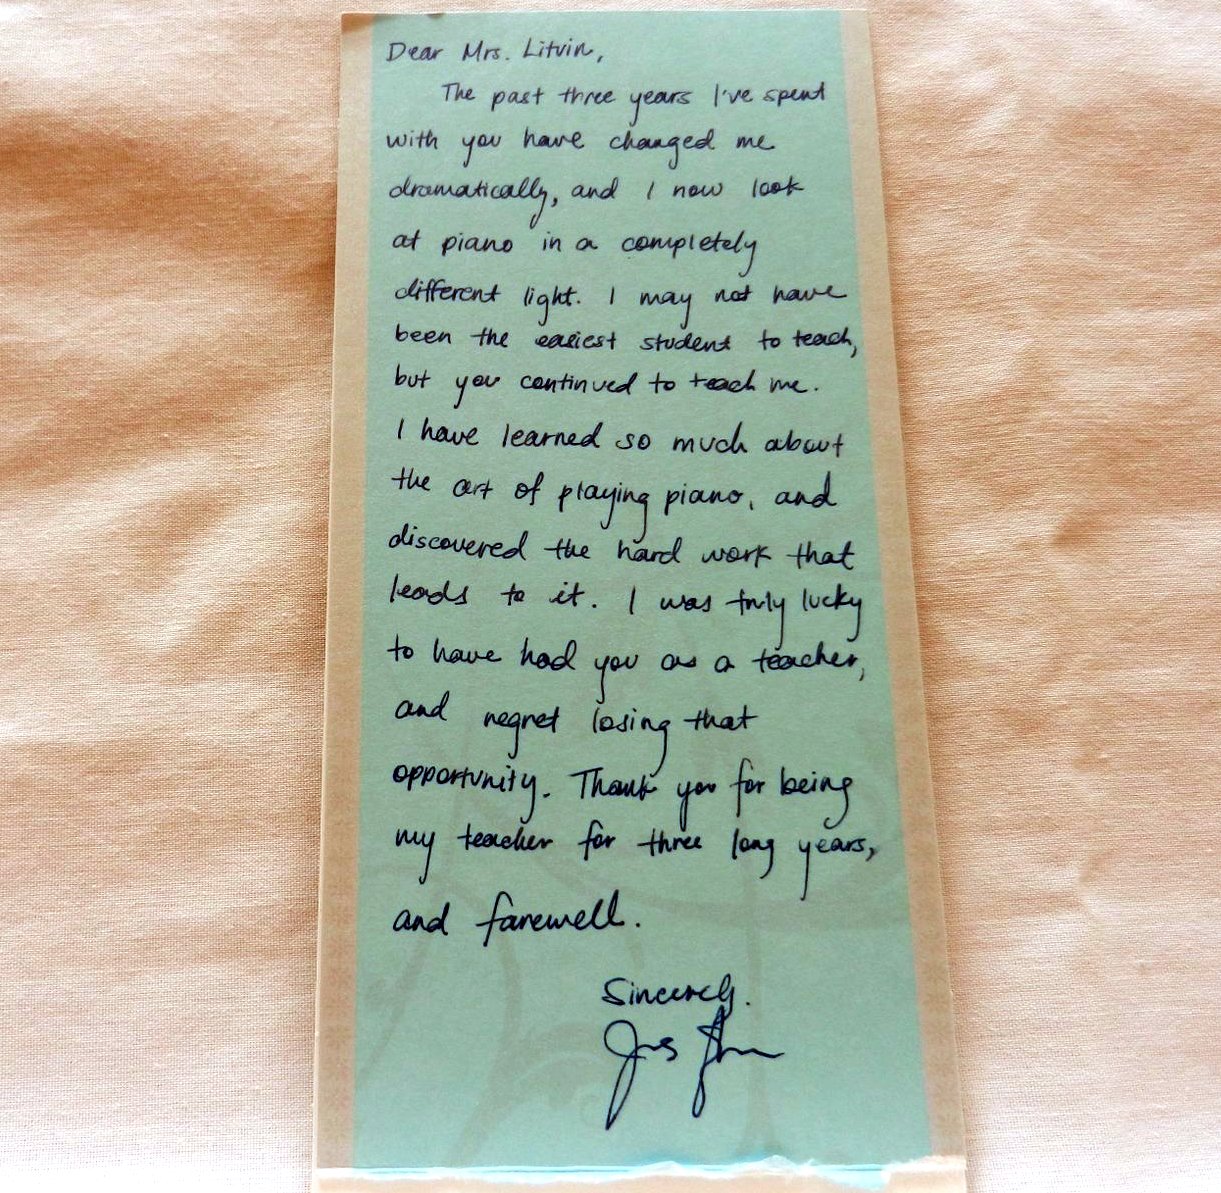 Dear Mrs. Litvin,
The past three years I've spent
with you have changed me
dramatically, and I now look
at piano in a completely
different light. I may not have
been the easiest student to teach,
but you continued to teach me.
I have learned so much about
the art of playing piano, and
discovered the hard work that
leads to it. I was truly lucky
to have had you as a teacher,
and regret losing that
opportunity. Thank you for being
my teacher for three long years,
and farewell.
Sincerely.